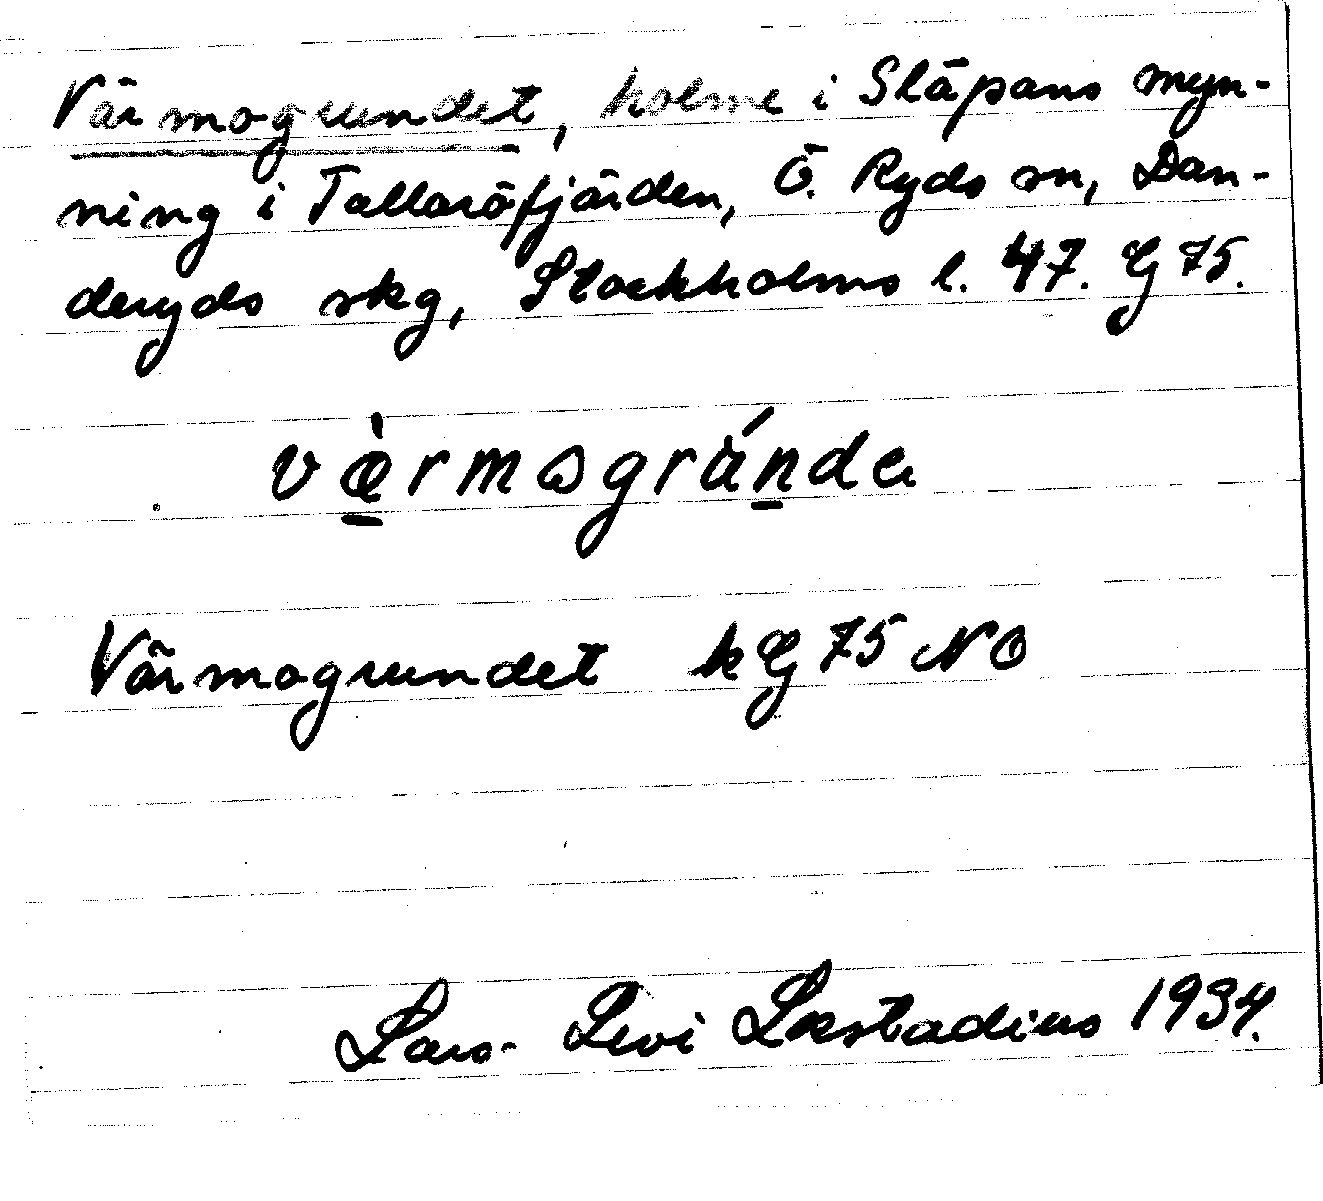 Värmogrundet, holme i Släpans myn-
ning i Tallaröfjärden, Ö. Ryds sn, Dan-
deryds skg, Stockholms l. 47. G 75.
værmsgrande
Värmogrundet k G 75 NO
Lars-Levi Læstadius 1934.